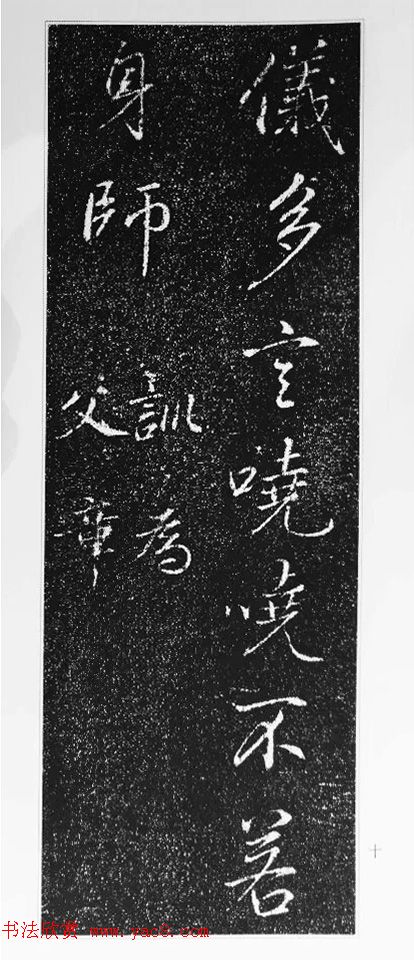 儀多言嘵嘵不若
身師
訓為
父章
十
书法欣赏 www.yac8.com